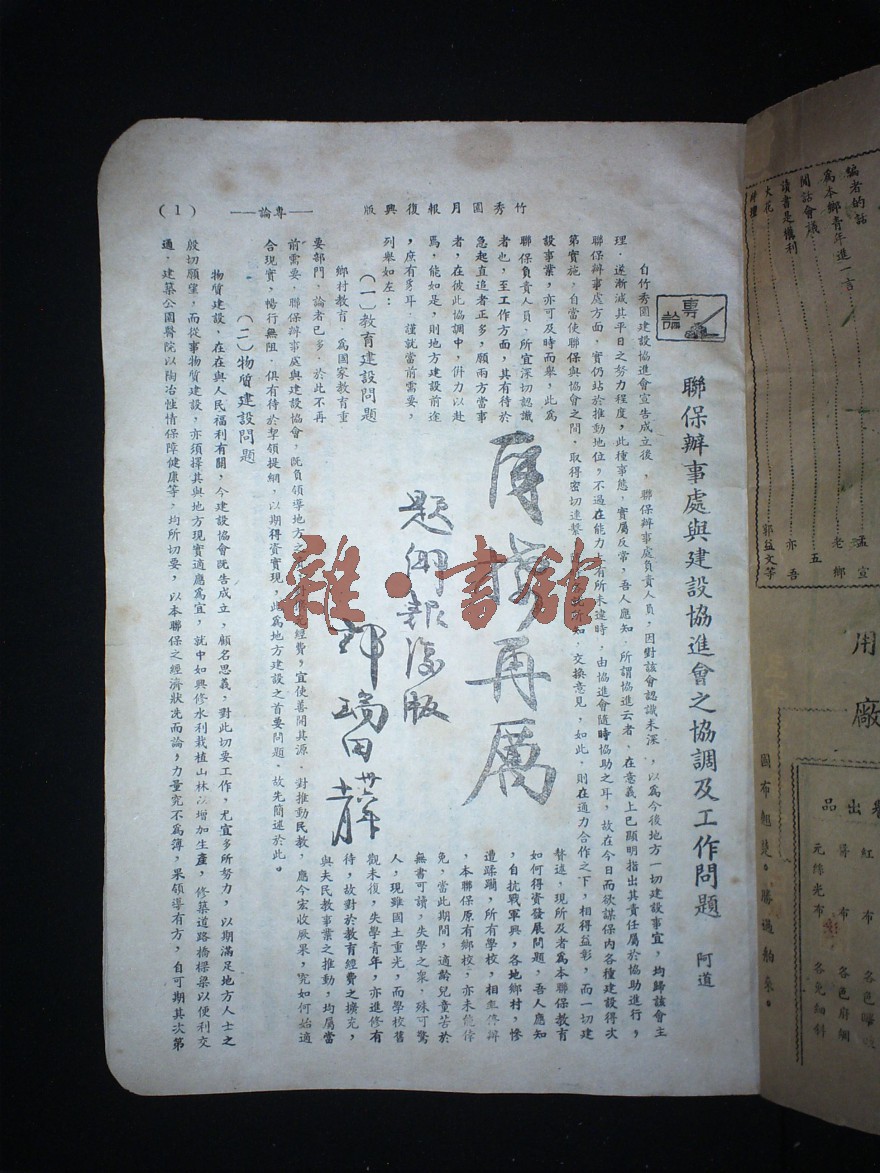 竹秀園月報復興版
——專論——
(1)
專論
聯保辦事處與建設協進會之協調及工作問題
阿道
自竹秀園建設協進會宣告成立後，聯保辦事處負責人員，因對該會認識未深，以為今後地方一切建設事宜，均歸該會主
理．遂漸減其平日之努力程度，此種事態，實屬反常，吾人應知．所謂協進云者．在意義上已顯明指出其責任屬於協助進行，
聯保辦事處方面，實仍站於推動地位，不過在能力上有所未逮時．由協進會隨時協助之耳，故在今日而欲謀保內各種建設得次
第實施，自當使聯保與協會之間，取得密切連繫
交換意見，如此，則在通力合作之下，相得益彰，而一切建
設事業，亦可及時而舉，此為
聯保負責人員．所宜深切認識
者也，至工作方面，其有待於
急起直追者正多，願兩方當事
者，在彼此協調中，併力以赴
焉，能如是，則地方建設前途
，庶有豸耳．謹就當前需要，
列舉如左：
(一)教育建設問題
鄉村教育．為國家教育重
要部門．論者已多．於此不再
贅述，現所及者為本聯保教育
如何得資發展問題，吾人應知
，自抗戰軍興，各地鄉村，慘
遭蹂躪，所有學校，相繼停辦
，本聯保原有鄉校，亦未能倖
免，當此期間，適齡兒童苦於
無書可讀，失學之眾，殊可驚
人，現雖國土重光，而學校舊
觀未復，失學青年，亦進修有
待，故對於教育經費之擴充，
與夫民教事業之推動，均屬當
前需要．聯保辦事處與建設協會，既負領導地方之
經費，宜使善開其源．對推動民教，應令宏收厥果，究如何始適
合現實，暢行無阻．俱有待於挈領提綱，以期得資實現，此為地方建設之首要問題．故先簡述於此。
(二)物質建設問題
物質建設．在在與人民福利有關，今建設協會既告成立，顧名思義，對此切要工作，尤宜多所努力，以期滿足地方人士之
殷切願望，而從事物質建設，亦須擇其與地方現實適應為宜，就中如興修水利栽植山林以增加生產，修築道路橋樑以便利交
通．建築公園醫院以陶冶性情保障健康等，均所切要，以本聯保之經濟狀況而論，力量究不為薄，果領導有方，自可期其次第
再接再厲
題鄉報復版
郭瑞田
雜·書館
編者的話
為本鄉青年進一言
孟宣
閒話會議
老鄉
讀書是權利
五
火花
亦吾
郭益文等
用
廠
出品
紅布
各色
布
各色
元綈光布
各免細科
圖布翹楚。勝過舶來。